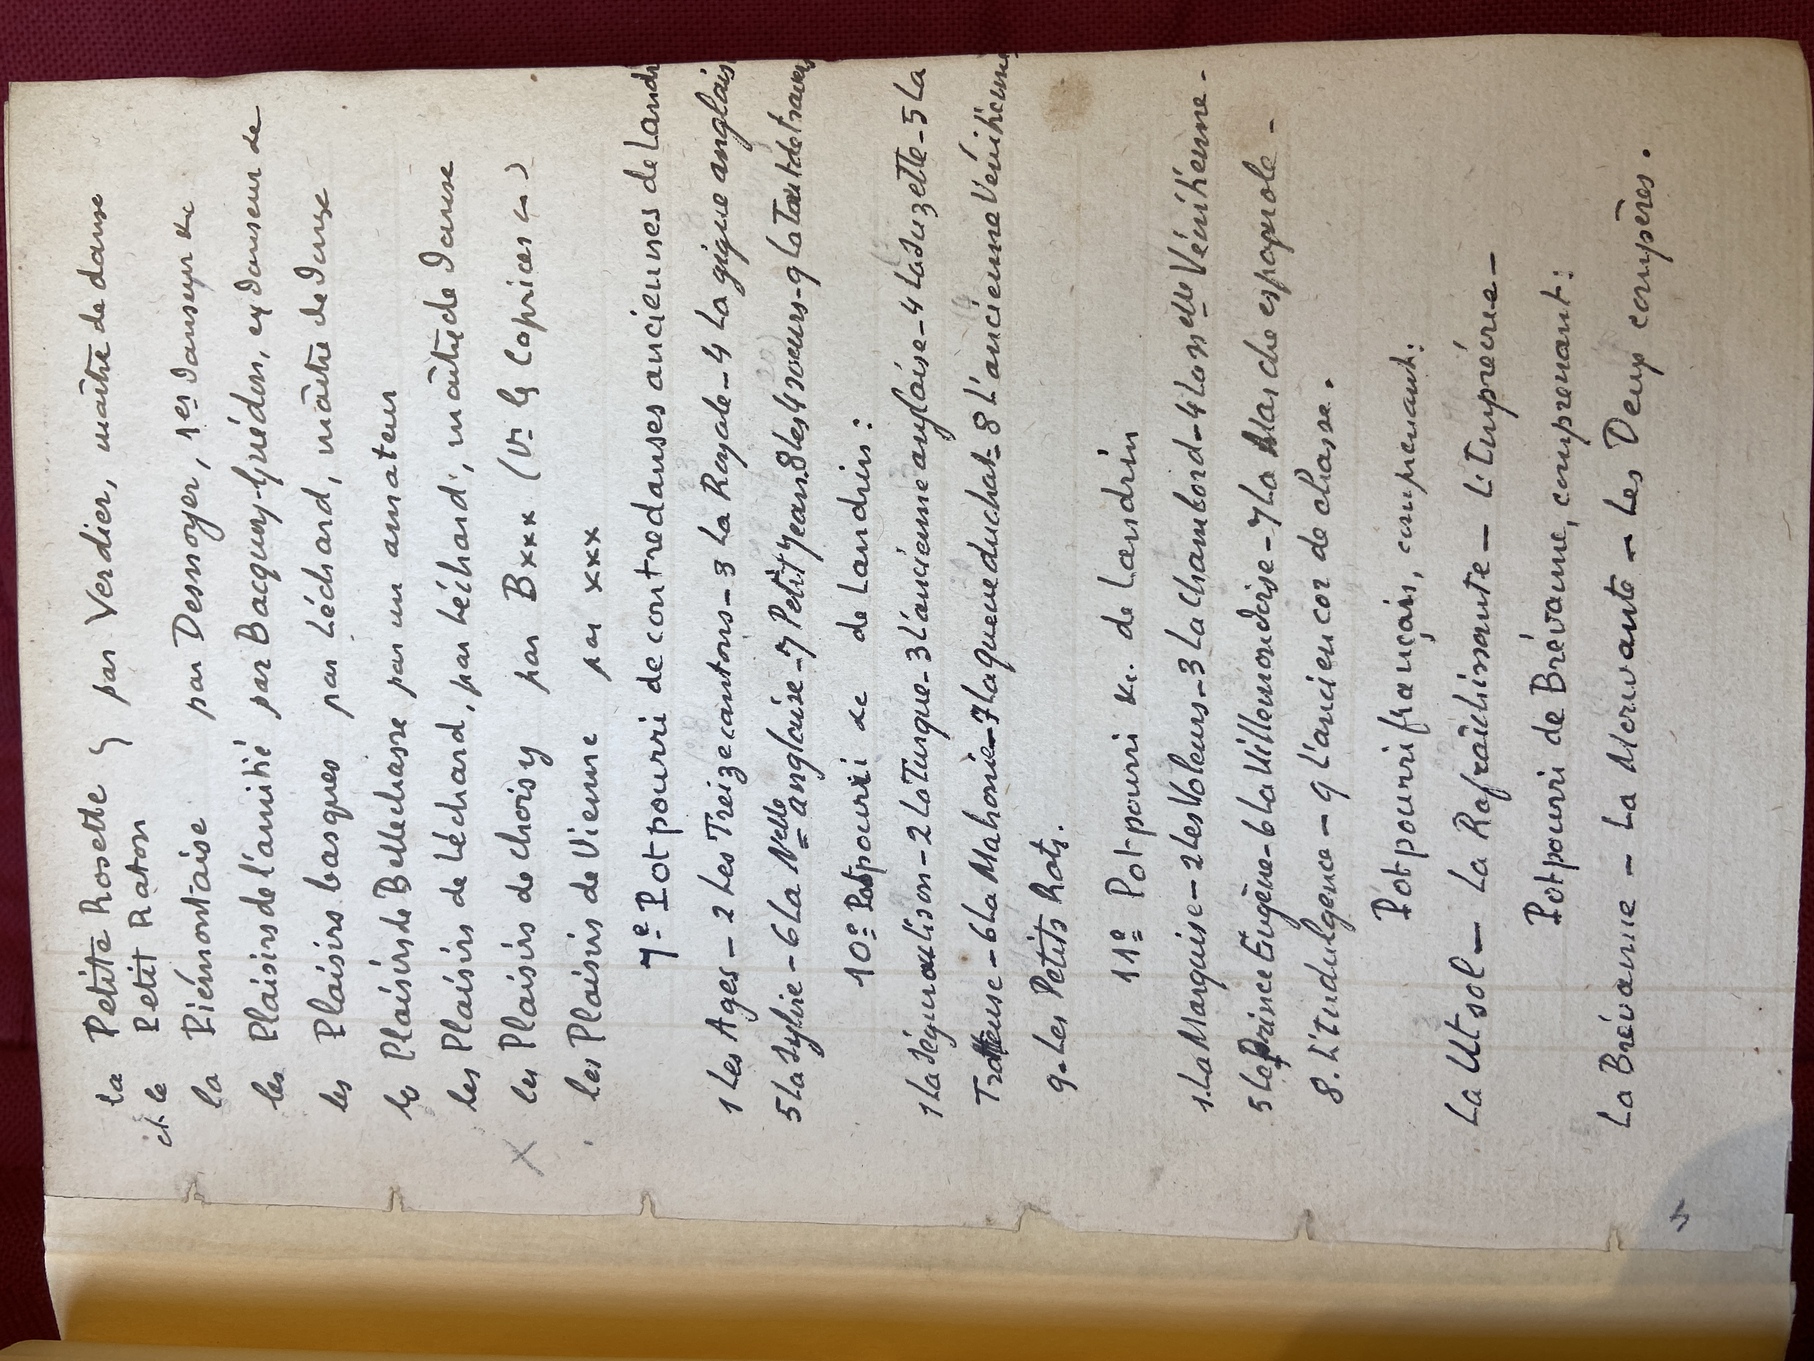 la Petite Rosette } par Verdier, maître de danse
et le Petit Raton
la Piémontaise par Desnoyer, 1er danseur &c
les Plaisirs de l'amitié par Bacquoy-Guédon, ex danseur de
les Plaisirs basques par Léchard, maître de danse
les Plaisirs de Bellechasse par un amateur
les Plaisirs de Léchard, par Léchard, maître de danse
x les Plaisirs de choisy par Bxxx (Vr les Caprices &)
les Plaisirs de Vienne par xxx
7e Pot pourri de contredanses anciennes de Landr
1 Les Ages - 2 Les Treize cantons - 3 La Royale - 4 La gigue anglais
5 La Sylvie - 6 La Nelle anglaise - 7 Petit Jean. 8 Les 4 soeurs - 9 La Tout de travers
10e Pot pourri &c de Landrin :
1 La Séguraulison - 2 La Turque - 3 L'ancienne anglaise - 4 La Suzette - 5 La
Tratteuse - 6 La Mahonie - 7 La queue du chat - 8 L'ancienne Vénitienne
9 - Les Petits Rats.
11e Pot pourri &c. de Landrin
1. La Marquise - 2 Les Voleurs - 3 La Chambord - 4 La nelle Vénitienne -
5 Le Prince Eugène - 6 La Villemomdoise - 7 La Marche espagnole -
8. L'Indulgence - 9 L'ancien cor de chasse.
Pot pourri français, comprenant :
La Ut sol - La Rafraîchissante - L'Imprévue -
Pot pourri de Brévanne, comprenant :
La Brévanne - La Mervante - Les Deux compères.
5